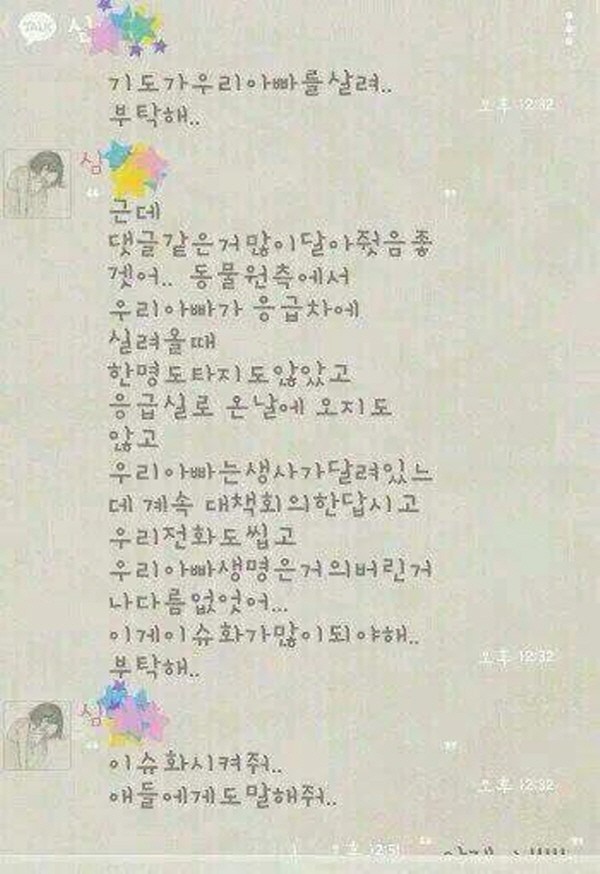 TALK 심
기도가우리아빠를살려..
부탁해..
오후 12:32
심
근데
댓글같은거많이달아줬음좋
겟어.. 동물원측에서
우리아빠가 응급차에
실려올때
한명도타지도않았고
응급실로 온날에 오지도
않고
우리아빠는생사가달려있느
데 계속 대책회의한답시고
우리전화도씹고
우리아빠생명은거의버린거
나다름없엇어...
이게이슈화가많이되야해..
부탁해..
오후 12:32
심
이슈화시켜줘..
애들에게도말해줘..
오후 12:32
오후 12:51